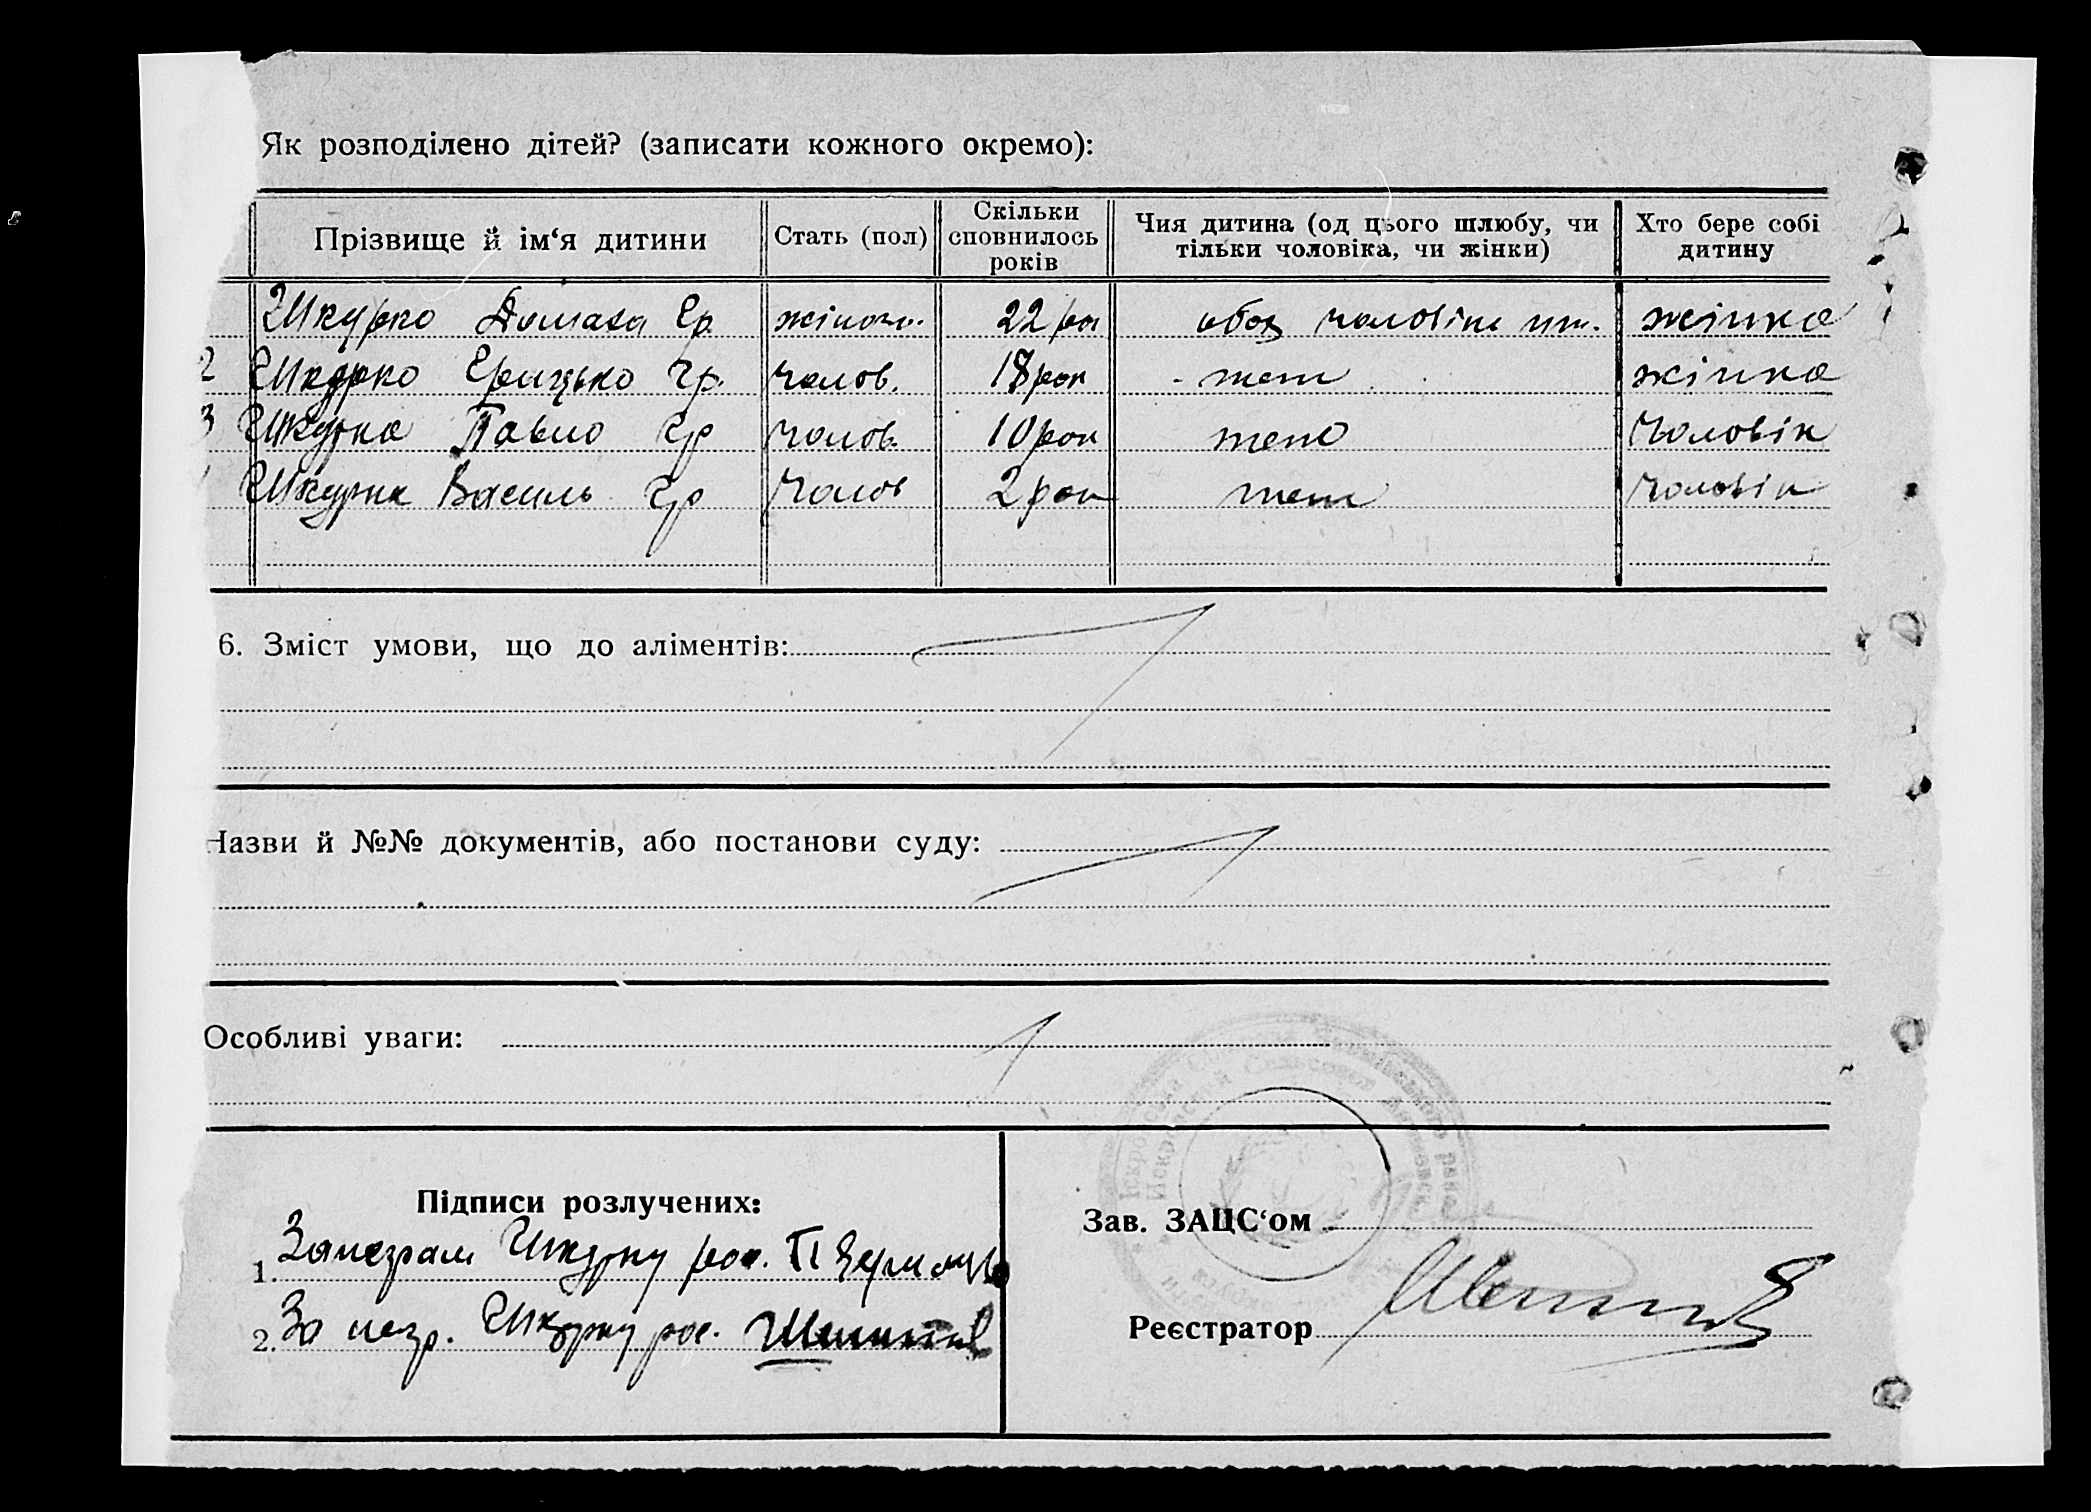 Як розподілено дітей? (записати кожного окремо):
Прізвище й ім‘я дитини Стать (пол) Скільки сповнилось років Чия дитина (од цього шлюбу, чи тільки чоловіка, чи жінки) Хто бере собі дитину
Шкурко Домаха Гр. жіноч. 22 рок обох чоловіка жінка
2 Шкурко Грицько Гр. чолов. 18 рок теж жінка
3 Шкурка Павло Гр чолов. 10 рок теж чоловік
Шкурка Василь Гр чолов 2 рок теж чоловік
6. Зміст умови, що до аліментів:
Назви й №№ документів, або постанови суду:
Особливі уваги:
Підписи розлучених:
1. За незграм Шкурку рос.
2. За незр. Шкурку рос.
Зав. ЗАЦС‘ом
Реєстратор